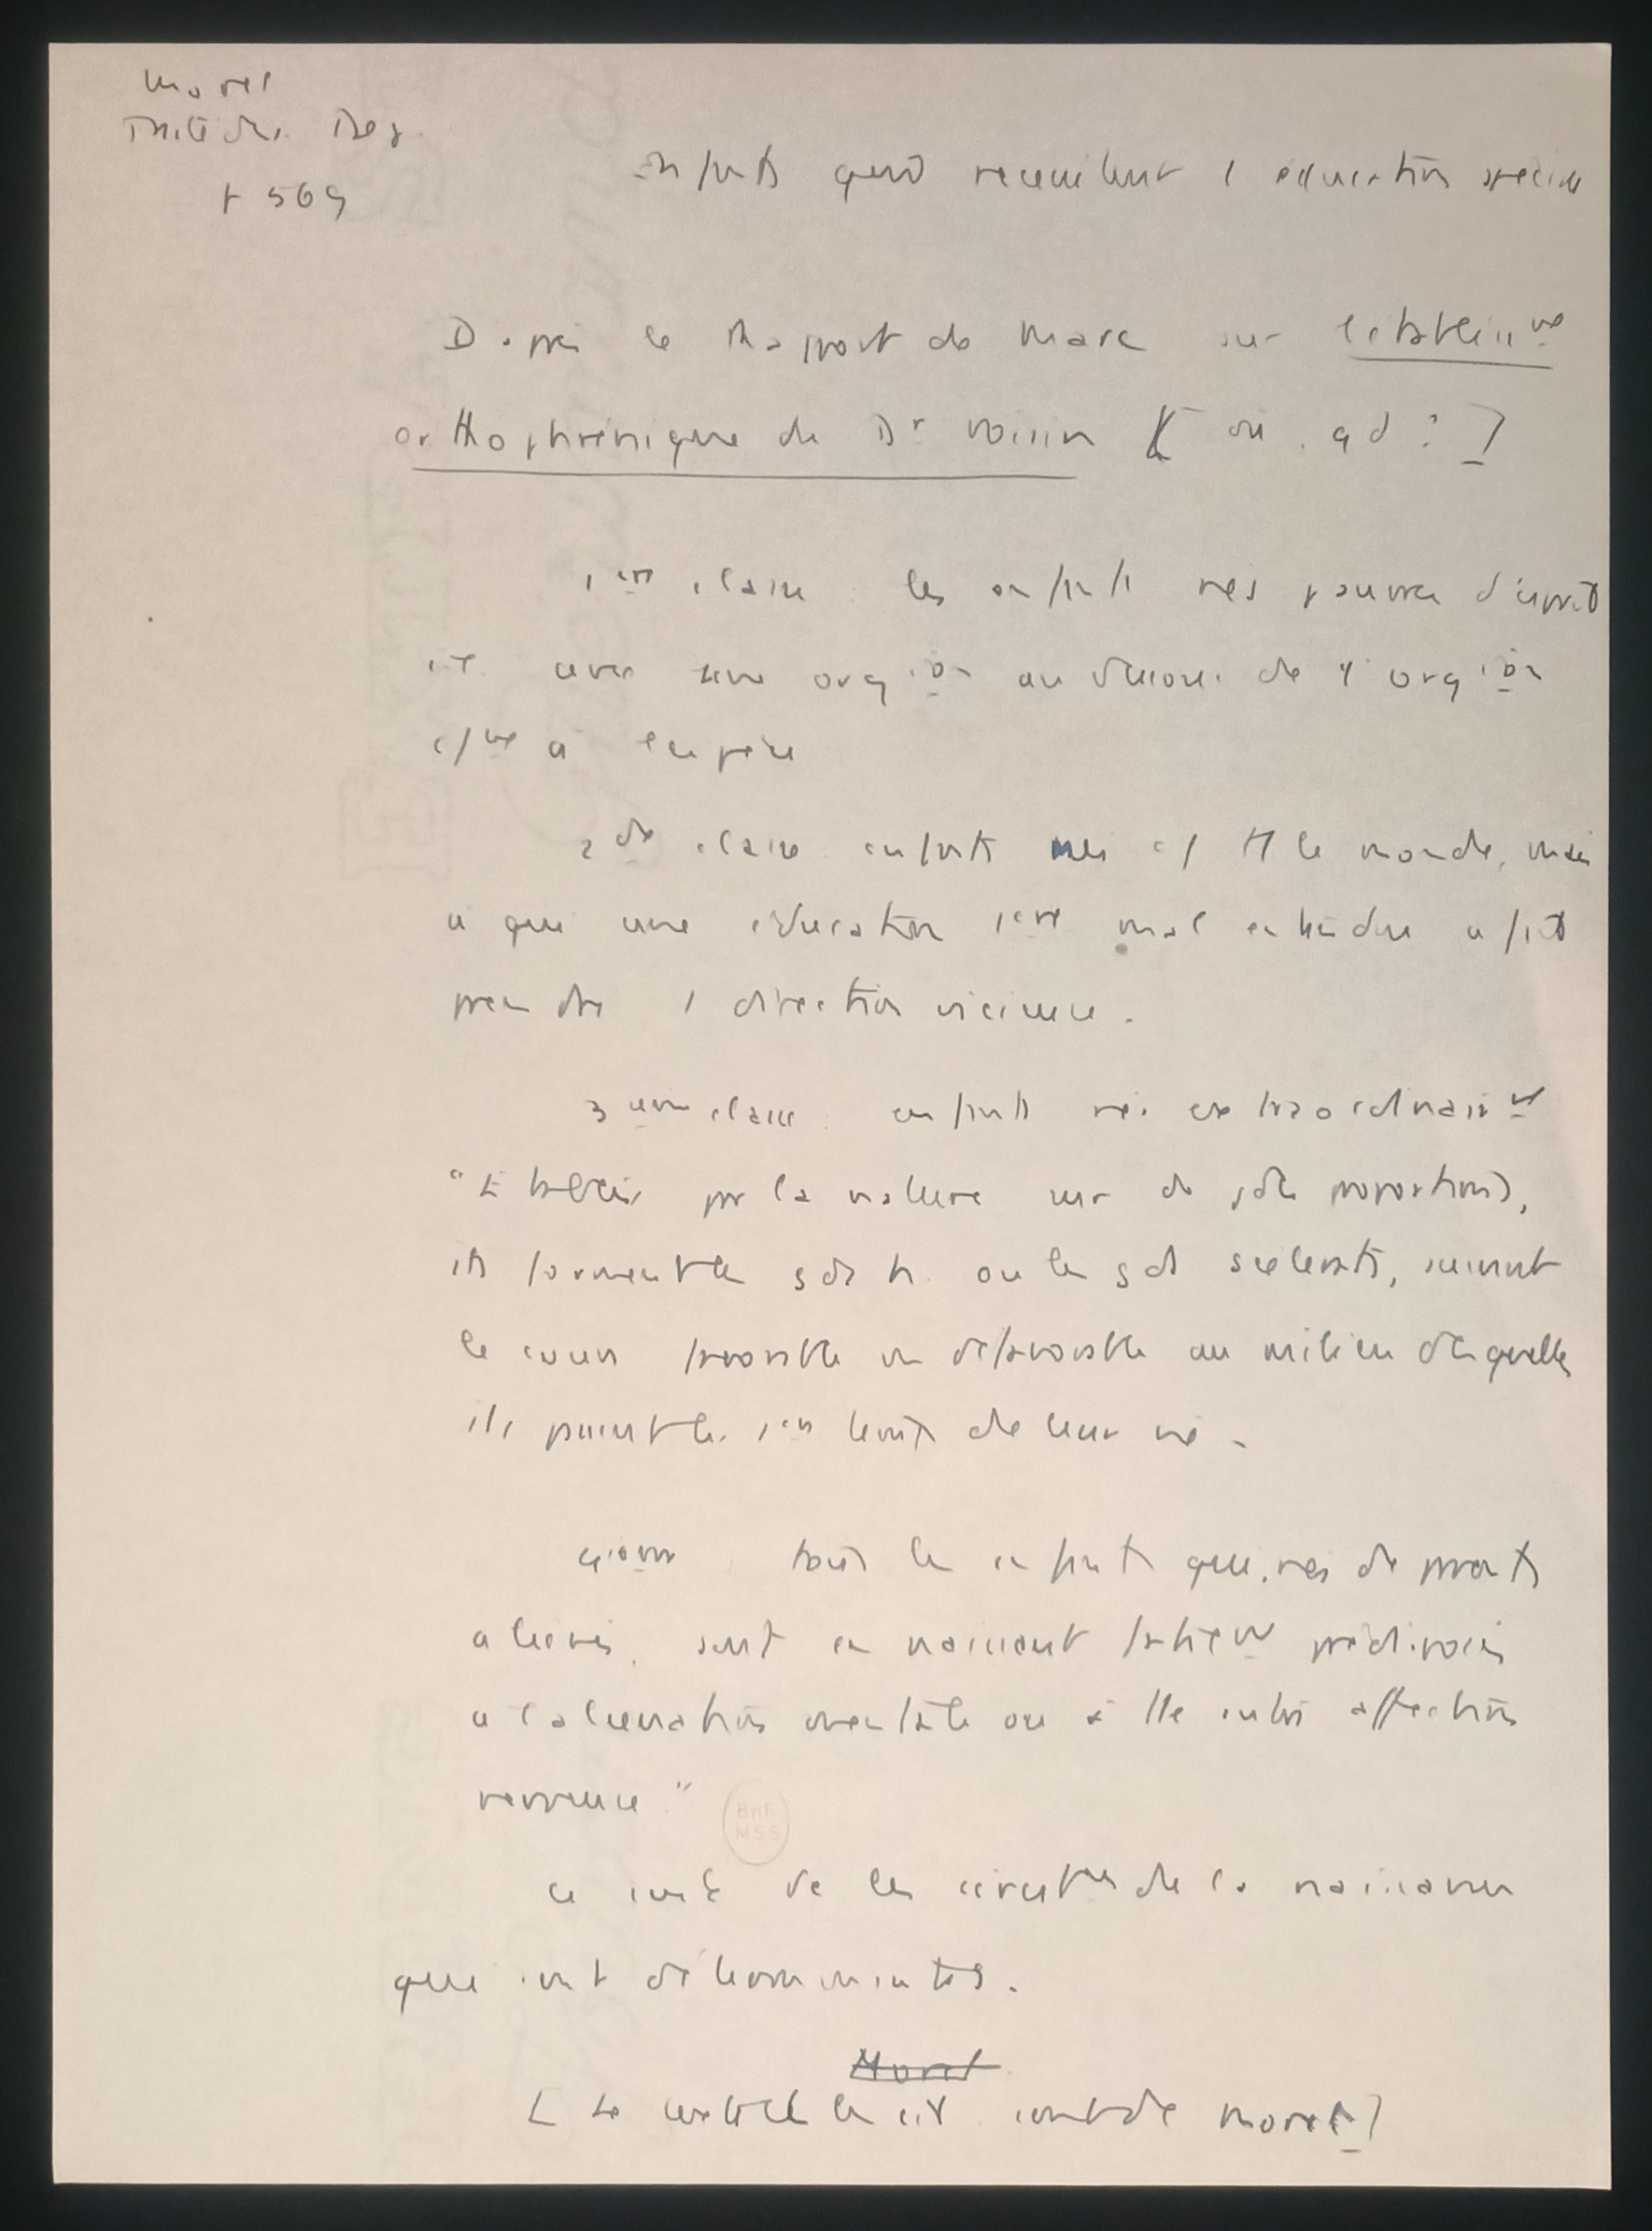 Morel
Traité des Deg.
p 569
Enfants qui réclament 1 éducation spéciale
D'après le Rapport de Marc sur l'établissmt
orthophrénique du Dr Voisin [ où . qd ? ]
1ère classe : les enfts nés pauvres d'esprit
avec une orgion au dessous de l'orgion
à l'espèce
2de classe enfants nés c/ tt le monde, mais
à qui une éducation 1ère mal entendue a fait
prendre 1 direction vicieuse.
3ème classe enfants nés extraordinairt
"Etablis par la nature sur de gdes proportions,
ils forment les gds h. ou les gds scélérats, suivant
le cours favorable ou défavorable au milieu desquelles
ils passent les 1ers temps de leur vie.
tous les enfants qui, nés de parents
aliénés, sont en naissant fatalemt prédisposés
à l'aliénation mentale ou à tte autre affection
nerveuse"
Ce sont de les circonst. de la naissance
qui sont déterminantes.
BnF
MSS
Morel
[ le texte cité de Morel ]